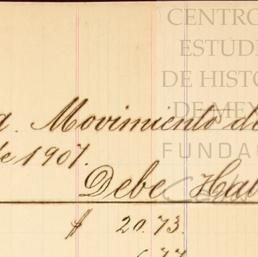 CENTRO
ESTUDI
DE HISTO
DE MEX
FUNDA
a. Movimiento de
de 1907.
Debe Hab
$ 20.73.